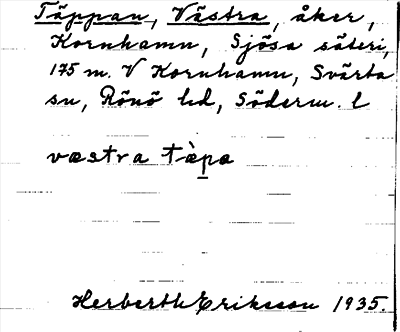 Täppan, Västra, åker,
Kornhamn, Sjösa säteri,
175 m. V Kornhamn, Svärta
sn, Rönö hd, Söderm. l
væstra tὲpa
Herberth Eriksson 1935.